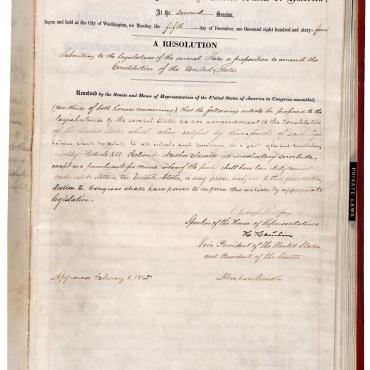 At the second Session,
Begun and held at the City of Washington, on Monday, the fifth day of December, one thousand eight hundred and sixty-four
A RESOLUTION
Submitting to the legislatures of the several States a proposition to amend the
Constitution of the United States
Resolved by the Senate and House of Representatives of the United States of America in Congress assembled,
(two thirds of both houses concurring) that the following article be proposed to the
legislatures of the several States as an amendment to the constitution
of the United States, which, when ratified by three fourths of said Legis
latures shall be valid, to all intents and purposes, as a part of the said Constitution
namely: Article XIII. Section 1. Neither Slavery nor involuntary servitude,
except as a punishment for crime whereof the party shall have been duly convicted
shall exist within the United States, or any place subject to their jurisdiction
Section 2. Congress shall have power to enforce this article by appropriate
legislation.
Speaker of the House of Representatives
H. Hamlin
Vice President of the United States
and President of the Senate
Approved February 1, 1865
Abraham Lincoln
PRIVATE LAWS